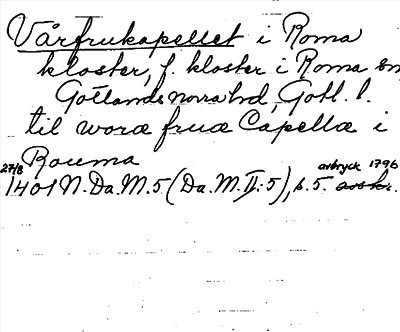 Vårfrukapellet i Roma
kloster, f. kloster i Roma sn
Gotlands norra hd, Gotl. l.
til woræ fruæ Capellæ i
Rouma
27/8 avtryck 1796
1401 N. Da. M. 5 (Da. M. II: 5), s. 5. avskr.